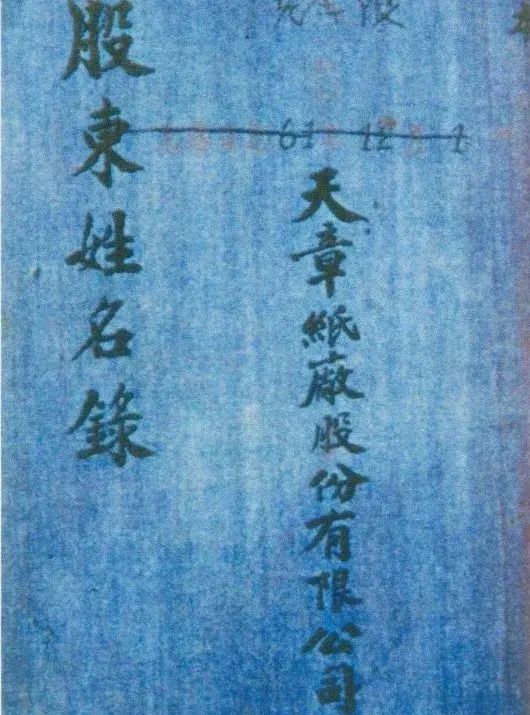 天章紙廠股份有限公司
股東姓名錄
61 12 1